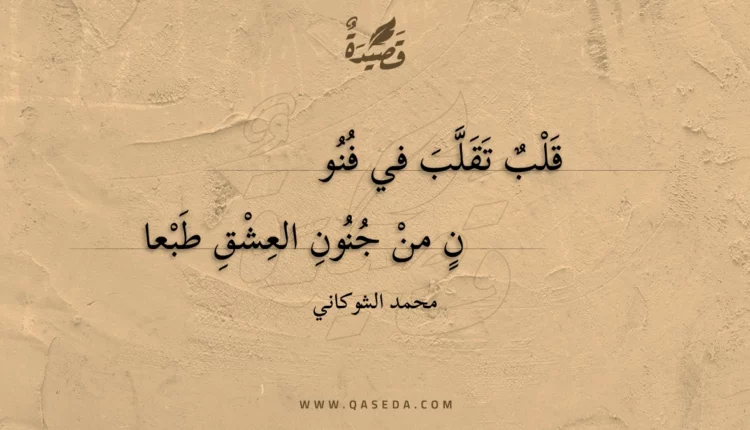 قَصِيدَةٌ
قَلْبٌ تَقَلَّبَ في فُنُو
نٍ منْ جُنُونِ العِشْقِ طَبْعا
محمد الشوكاني
WWW.QASEDA.COM